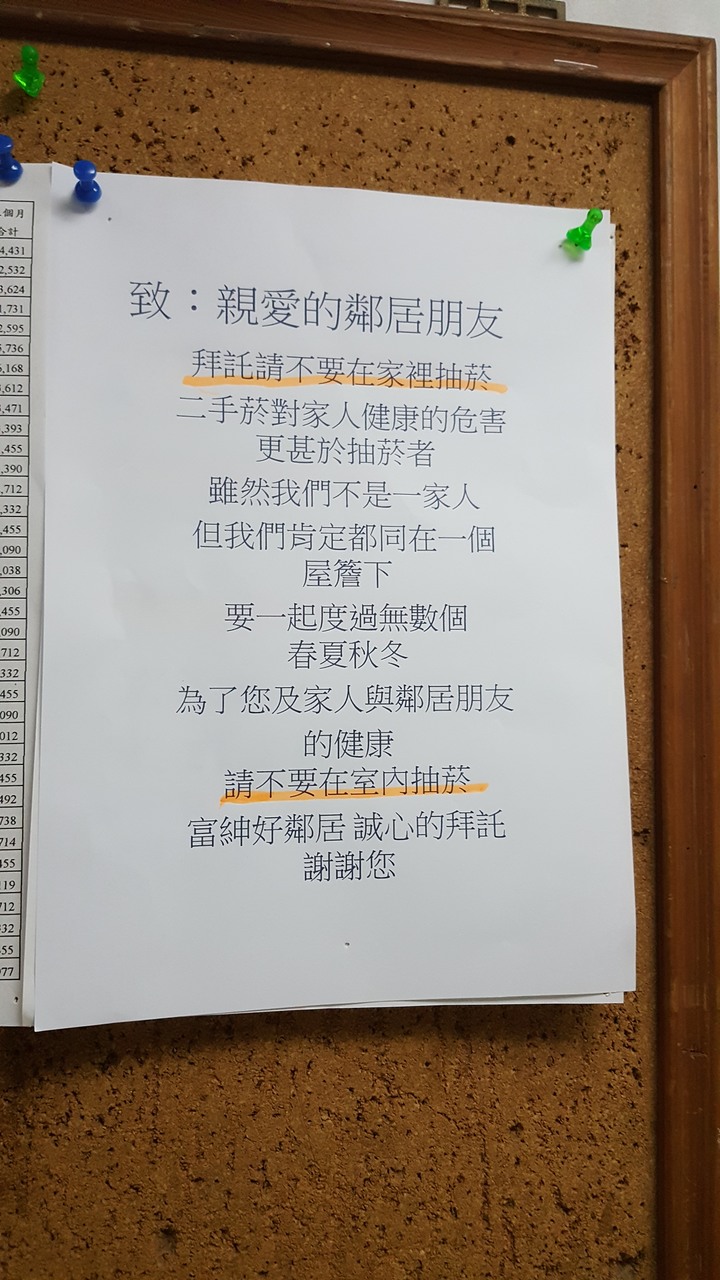 致：親愛的鄰居朋友
拜託請不要在家裡抽菸
二手菸對家人健康的危害
更甚於抽菸者
雖然我們不是一家人
但我們肯定都同在一個
屋簷下
要一起度過無數個
春夏秋冬
為了您及家人與鄰居朋友
的健康
請不要在室內抽菸
富紳好鄰居 誠心的拜託
謝謝您
個月
合計
4,431
2,532
3,624
1,731
2,595
5,736
6,168
3,612
3,471
,393
,455
,390
,712
,332
,455
,090
,038
,306
,455
,090
712
332
455
090
012
332
455
492
738
714
455
119
712
332
455
977